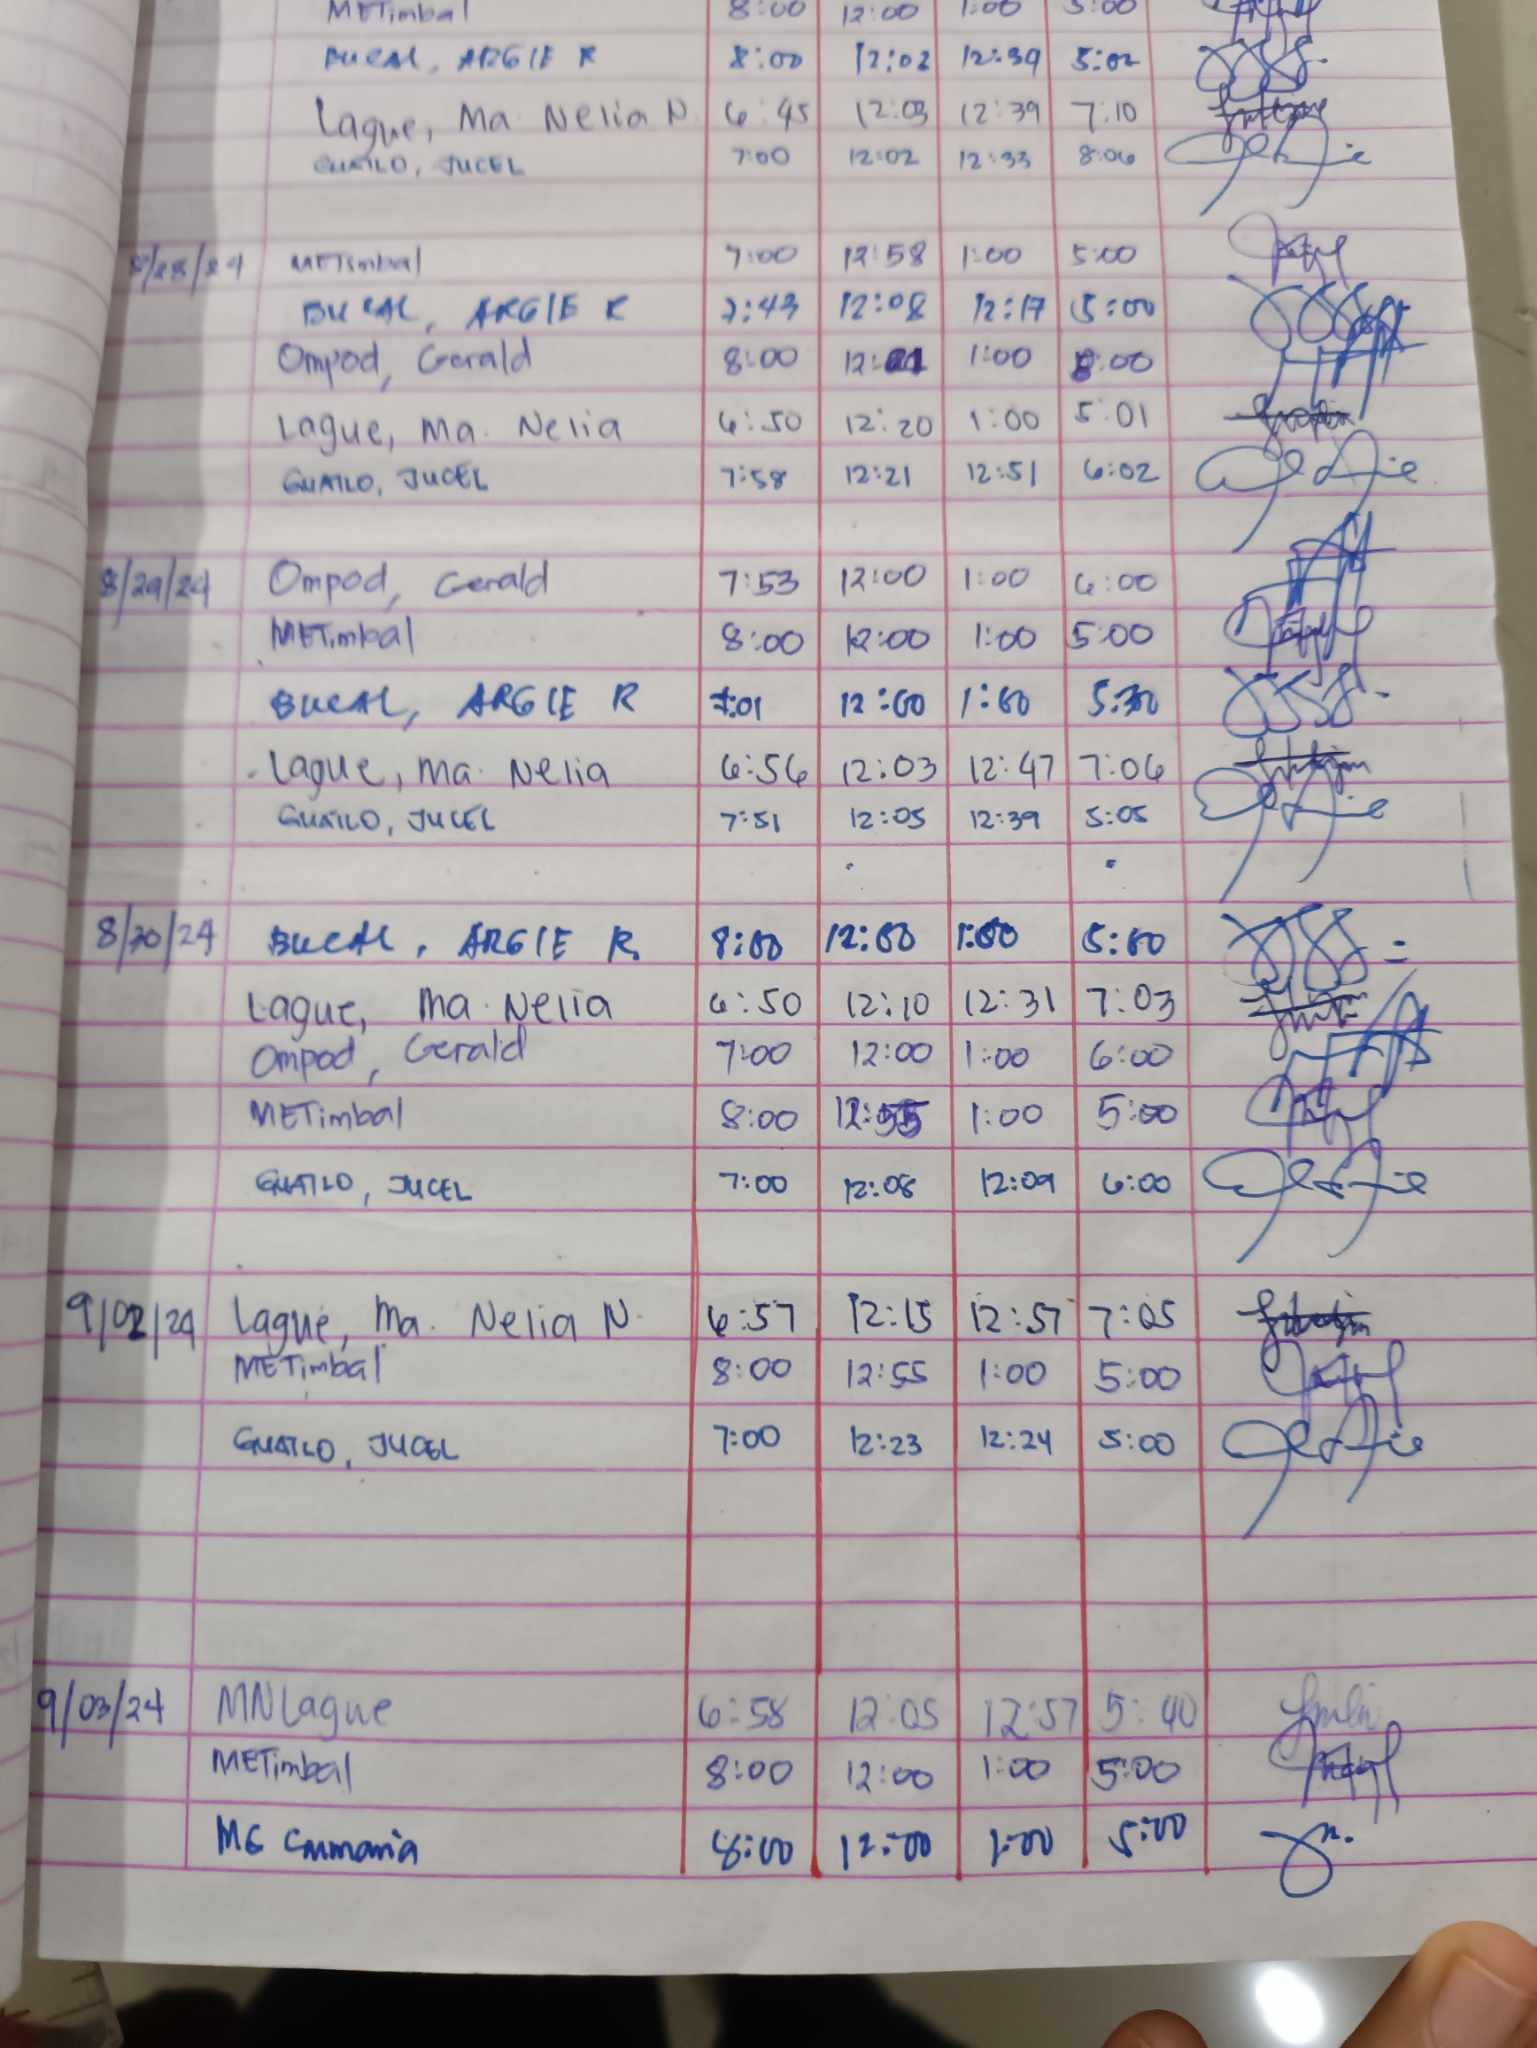 METimbal 8:00 12:00 1:00 5:00
BUCAL, ARGIE R 8:00 12:02 12:39 5:02
Lague, Ma Nelia N. 6:45 12:03 12:39 7:10
GUATLO, JUCEL 7:00 12:02 12:33 8:06
8/28/24 METimbal 7:00 12:58 1:00 5:00
BUCAL, ARGIE R 7:43 12:08 12:17 5:00
Ompod, Gerald 8:00 1:00
Lague, Ma. Nelia 6:50 12:20 1:00 5:01
GUATLO, JUCEL 7:58 12:21 12:51 6:02
8/29/24 Ompod, Gerald 7:53 12:00 1:00 6:00
METimbal 8:00 12:00 1:00 5:00
BUCAL, ARGIE R 7:01 12:00 1:00 5:30
Lague, Ma. Nelia 6:56 12:03 12:47 7:06
GUATLO, JUCEL 7:51 12:05 12:39 5:05
8/30/24 BUCAL, ARGIE R. 8:00 12:00 1:00 5:00
Lague, Ma. Nelia 6:50 12:10 12:31 7:03
Ompod, Gerald 7:00 12:00 1:00 6:00
METimbal 8:00 12:55 1:00 5:00
GUATLO, JUCEL 7:00 12:08 12:09 6:00
9/02/24 Lague, Ma. Nelia N. 6:57 12:15 12:57 7:05
METimbal 8:00 12:55 1:00 5:00
GUATLO, JUCEL 7:00 12:23 12:24 5:00
9/03/24 MNLague 6:58 12:05 12:57 5:40
METimbal 8:00 12:00 1:00 5:00
MG 8:00 12:00 1:00 5:00